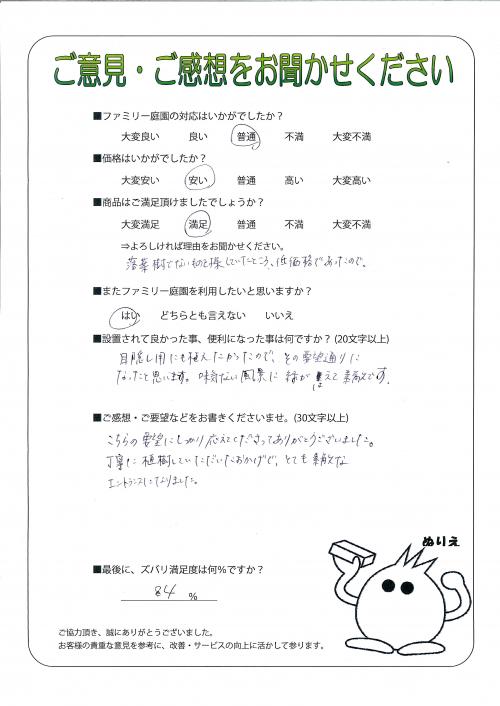 ご意見・ご感想をお聞かせください
■ファミリー庭園の対応はいかがでしたか？
大変良い 良い 普通 不満 大変不満
■価格はいかがでしたか？
大変安い 安い 普通 高い 大変高い
■商品はご満足頂けましたでしょうか？
大変満足 満足 普通 不満 大変不満
⇒よろしければ理由をお聞かせください。
落葉樹でないものを探していたところ、低価格であったので。
■またファミリー庭園を利用したいと思いますか？
はい どちらとも言えない いいえ
■設置されて良かった事、便利になった事は何ですか？(20文字以上)
目隠し用にも植えたかったので、その要望通りに
なったと思います。味気ない風景に緑が映えて素敵です。
■ご感想・ご要望などをお書きくださいませ。(30文字以上)
こちらの要望にしっかり応えてくださってありがとうございました。
丁寧に植樹していただいたおかげで、とても素敵な
エントランスになりました。
ぬりえ
■最後に、ズバリ満足度は何％ですか？
84 ％
ご協力頂き、誠にありがとうございました。
お客様の貴重な意見を参考に、改善・サービスの向上に活かして参ります。